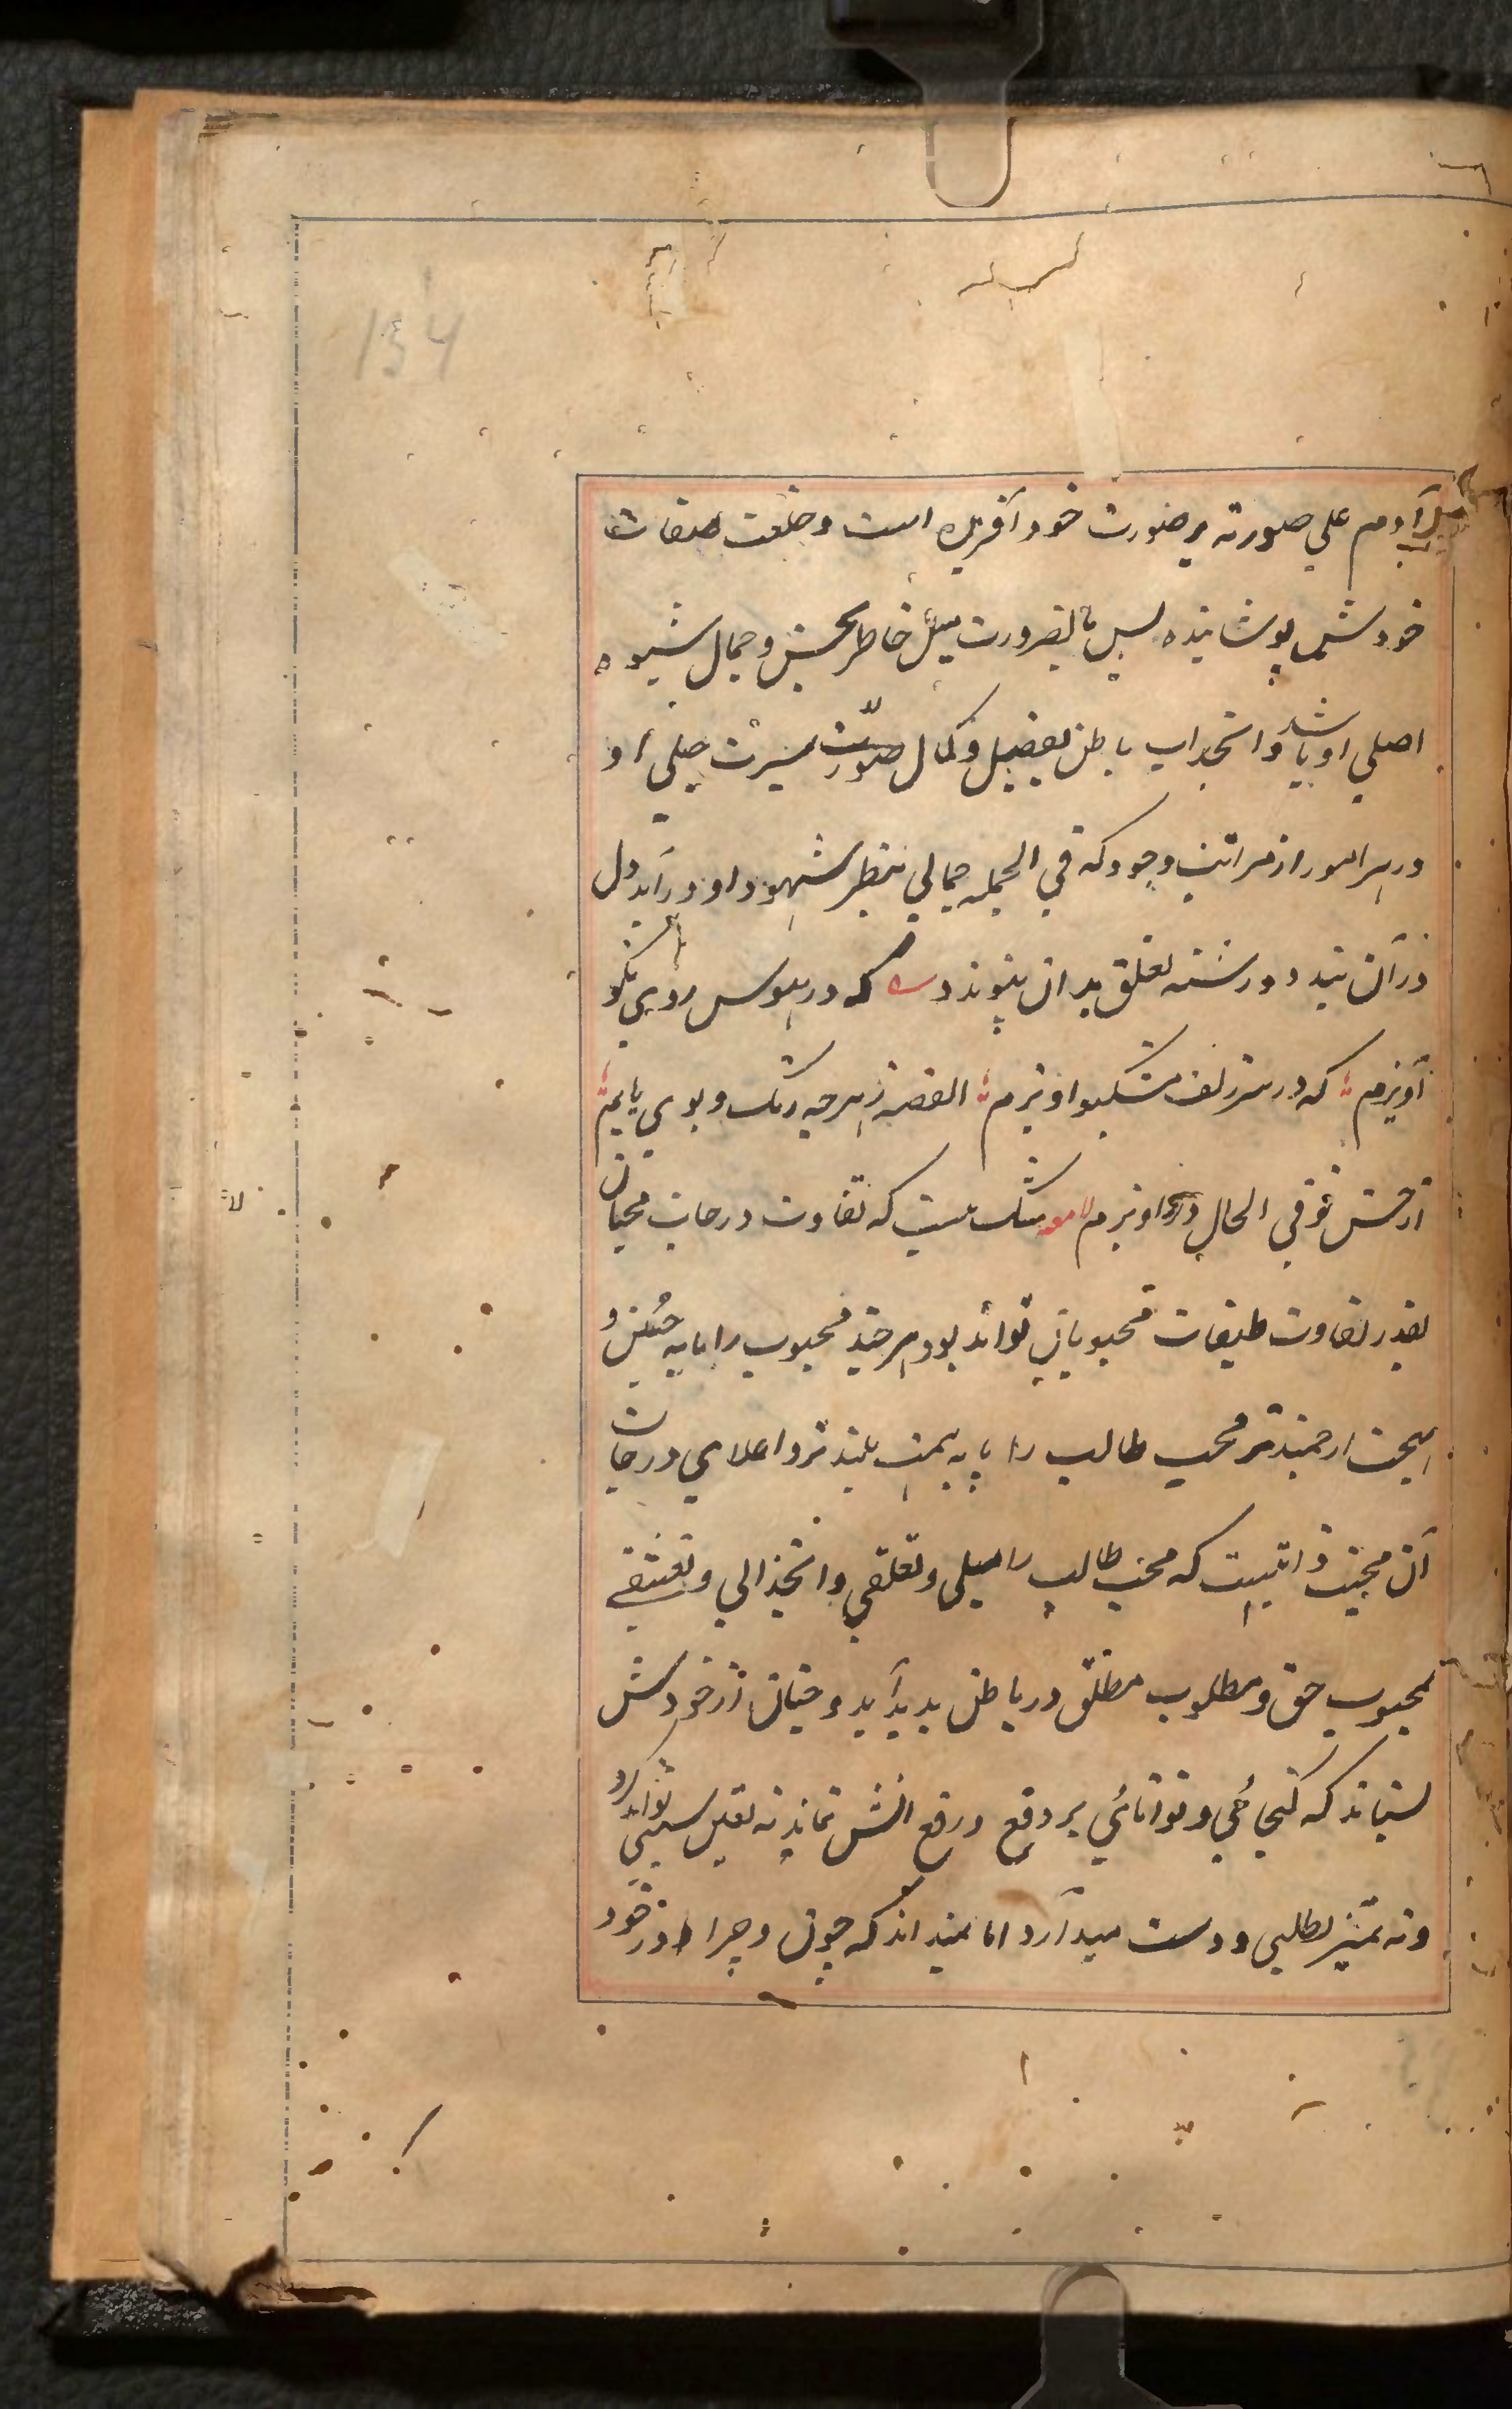 134
آدم علی صورته بر صورت خود آفریده است و خلعت صفات
خودش پوشانیده پس بالضرورت میل خاطر بحسن و جمال شیوه
اصلی او باشد و انجذاب باطن بفضل و کمال صورت سیرت جبلی او
در هر امور از مراتب وجود که فی الجمله جمالی بنظر شهود او در آید دل
در آن بندد و رشته تعلق بدان پیوندد که در هوس روی نکو
آویزم که در سر زلف مشکبو آویزم القصه ز هر چه رنگ و بوی یابم
از حسن تو فی الحال درو آویزم شک نیست که تفاوت درجات محبان
بقدر تفاوت طبقات محبوبان تواند بود هر چند محبوب را پایه حسن و
بهجت ارجمندتر محب طالب را پایه همت بلندتر و اعلای درجات
آن محبت ذاتیست که محب طالب را میلی و تعلقی و انجذابی و تعشقی
بمحبوب حق و مطلوب مطلق در باطن پدید آید و چنان از خودش
بستاند که گنجائی و توانائی بر دفع و رفع آنش نماند نه تعین سببی تواند کرد
و نه تمیز مطلبی دوست میدارد اما نمیداند که چون و چرا در خود